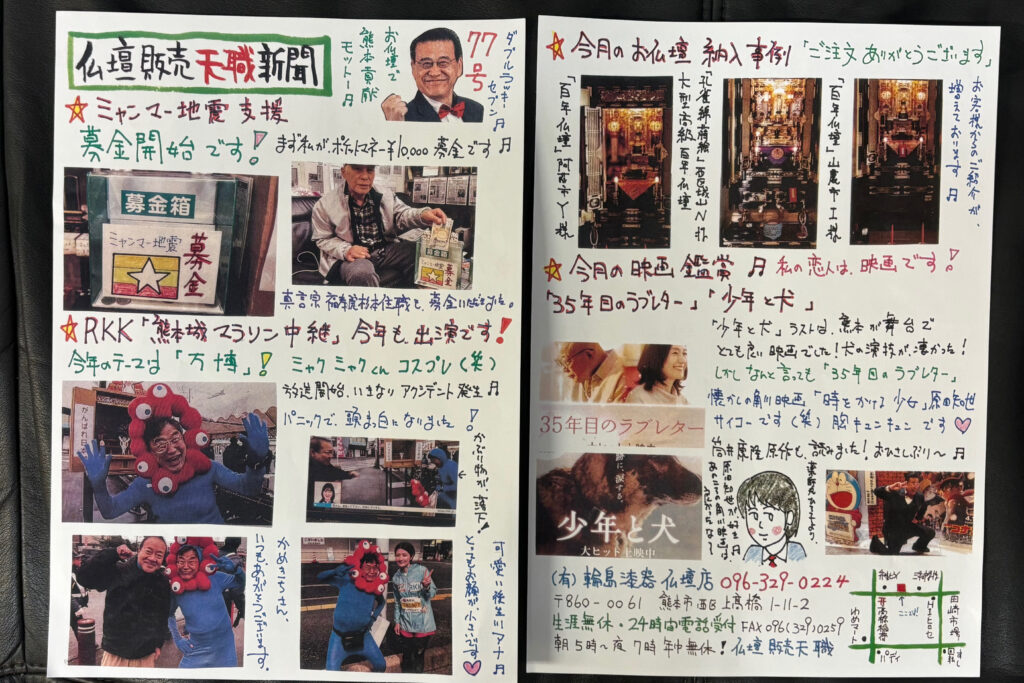 仏壇販売天職新聞
お仏壇で
熊本貢献
モットー♬
77号
ダブルラッキー
セブン♬
☆ミャンマー地震支援
募金開始です!
まず私が、ポケットマネー¥10,000募金です♬
募金箱
ミャンマー地震
募金
募金箱
募金
真言宗 福寿院杉本住職も、募金いただきました。
☆RKK「熊本城マラソン中継」今年も出演です!
今年のテーマは「万博」!ミャクミャクくん コスプレ(笑)
放送開始、いきなりアクシデント発生♬
パニックで、頭ま白になりました!
がんばれ
かぶり物が、落下!
かめきちさん、
いつもありがとうございます。
可愛い後生いアナ♬
とってもお顔が、小さいです♡
☆今月のお仏壇 納入事例「ご注文ありがとうございます」
「百年仏壇」阿蘇市Y様
大型高級百年仏壇
「百年仏壇」山鹿市I様
お客様からのご紹介が、
増えております♬
☆今月の映画鑑賞♬ 私の恋人は、映画です!
「35年目のラブレター」「少年と犬」
35年目のラブレター
少年と犬
大ヒット上映中
「少年と犬」ラストは、熊本が舞台で
とても良い映画でした!犬の演技が、凄かった!
しかしなんと言っても「35年目のラブレター」
懐かしの角川映画「時をかける少女」原田知世
サイコーです(笑)胸キュンキュンです♡
筒井康隆原作も、読みました!おひさしぶり〜♬
原田知世が、好き♬
あのころの角川映画は、
(有)輪島漆器仏壇店 096-329-0224
〒860-0061 熊本市西区上高橋1-11-2
生涯無休・24時間電話受付 FAX096(329)0259
朝5時〜夜7時 年中無休!仏壇販売天職
ココ!
田崎市場